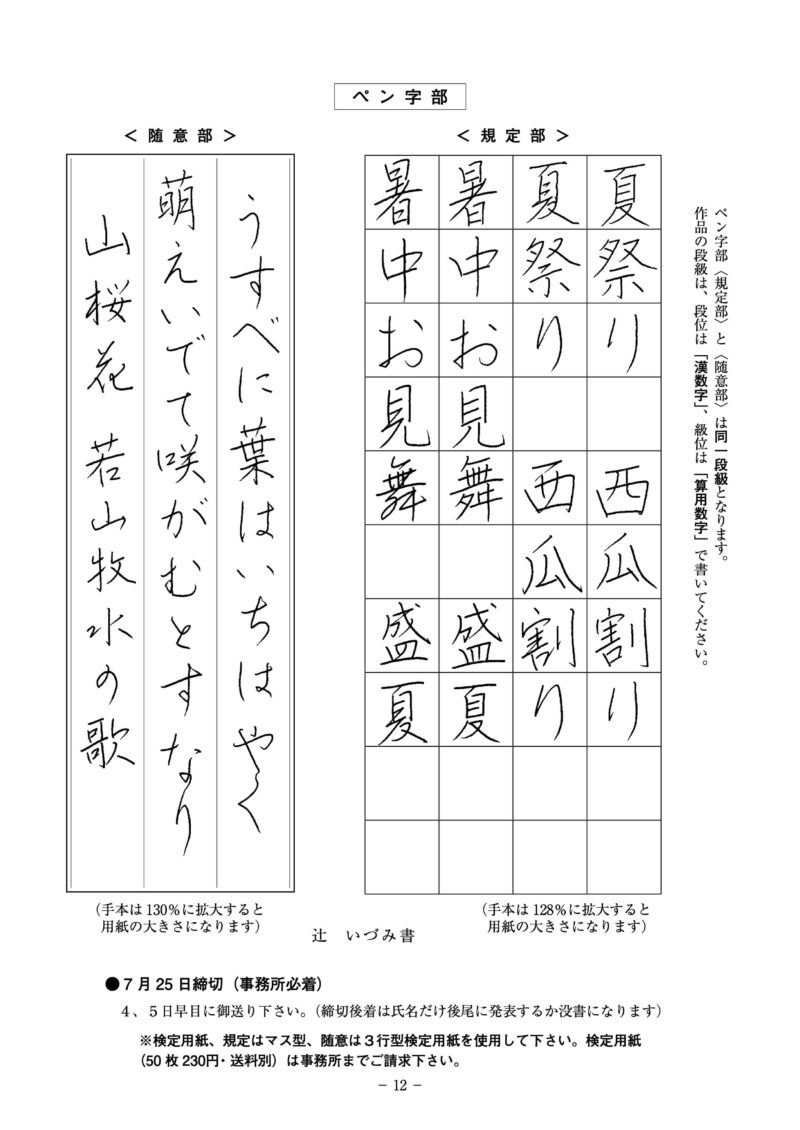 ペン字部
＜規定部＞
夏祭り 西瓜割り
夏祭り 西瓜割り
暑中お見舞 盛夏
暑中お見舞 盛夏
ペン字部〈規定部〉と〈随意部〉は同一段級となります。
作品の段級は、段位は「漢数字」、級位は「算用数字」で書いてください。
（手本は128％に拡大すると
用紙の大きさになります）
＜随意部＞
うすべに葉はいちはやく
萌えいでて咲がむとすなり
山桜花 若山牧水の歌
（手本は130％に拡大すると
用紙の大きさになります）
辻 いづみ書
●７月25日締切（事務所必着）
４、５日早目に御送り下さい。（締切後着は氏名だけ後尾に発表するか没書になります）
※検定用紙、規定はマス型、随意は３行型検定用紙を使用して下さい。検定用紙
（50枚230円・送料別）は事務所までご請求下さい。
− 12 −